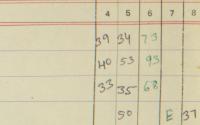 4 5 6 7 8
39 34 73
40 53 93
33 35 68
50 E 37